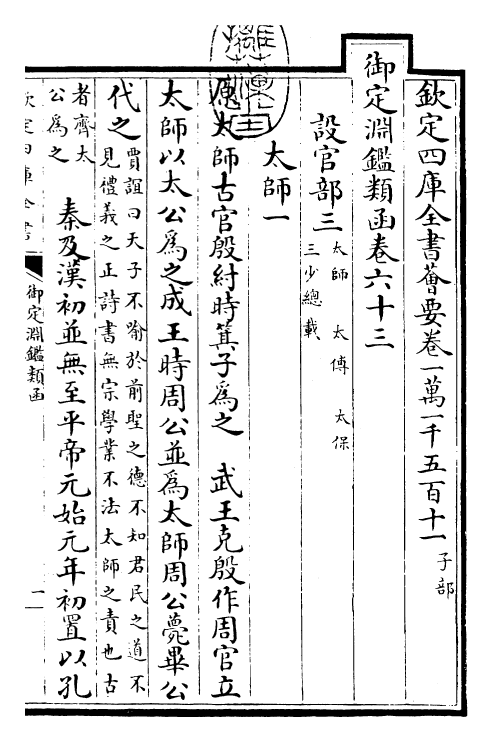 欽定四庫全書薈要卷一萬一千五百十一 子部
御定淵鑑類函卷六十三
設官部三 太師 太傅 太保
三少總載
太師一
原太師古官殷紂時箕子為之 武王克殷作周官立
太師以太公為之成王時周公並為太師周公薨畢公
代之 賈誼曰天子不喻於前聖之德不知君民之道不
見禮義之正詩書無宗學業不法太師之責也古
者齊太
公為之 秦及漢初並無至平帝元始元年初置以孔
欽定四庫全書
御定淵鑑類函